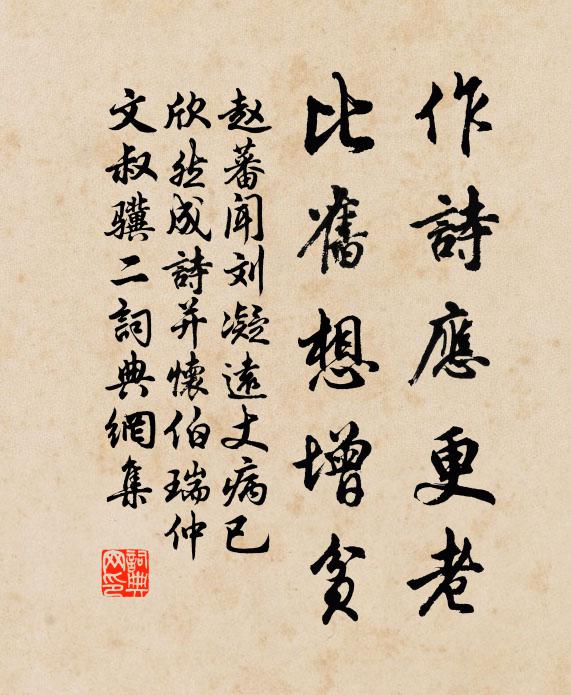 作詩應更老
比舊想增貧
赵蕃闻刘凝遠丈病已
欣然成詩并懷伯瑞仲
文叔骥二詞典網集
詞典网印